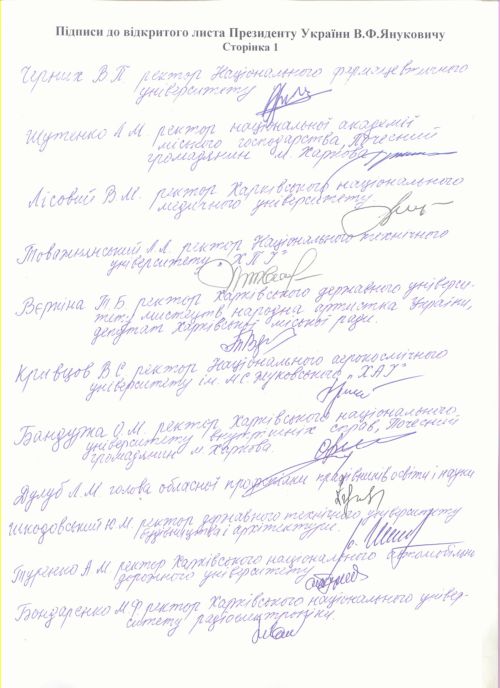 Підписи до відкритого листа Президенту України В.Ф.Януковичу
Сторінка 1
Черних В П ректор Національного фармацевтичного
університету
Шутенко Л М. ректор національної академії
міського господарства, Почесний
громадянин м. Харкова
Лісовий В М. ректор Харківського національного
медичного університету
Товажнянський Л Л. ректор Національного технічного
університету "ХПІ"
Вєркіна Т Б ректор Харківського державного універси-
тету мистецтв, народна артистка України,
депутат Харківської міської ради.
Кривцов В С ректор Національного аерокосмічного
університету ім. М Є Жуковського "ХАІ"
Бандурка О М. ректор Харківського національного
університету внутрішніх справ, Почесний
громадянин м Харкова.
Дулуб Л М. голова обласної профспілки працівників освіти і науки
Шкодовський Ю М. ректор державного технічного університету
будівництва і архітектури.
Туренко А М ректор Харківського національного автомобільно
дорожнього університету
Бондаренко М Ф ректор Харківського національного універ-
ситету радіоелектроніки.